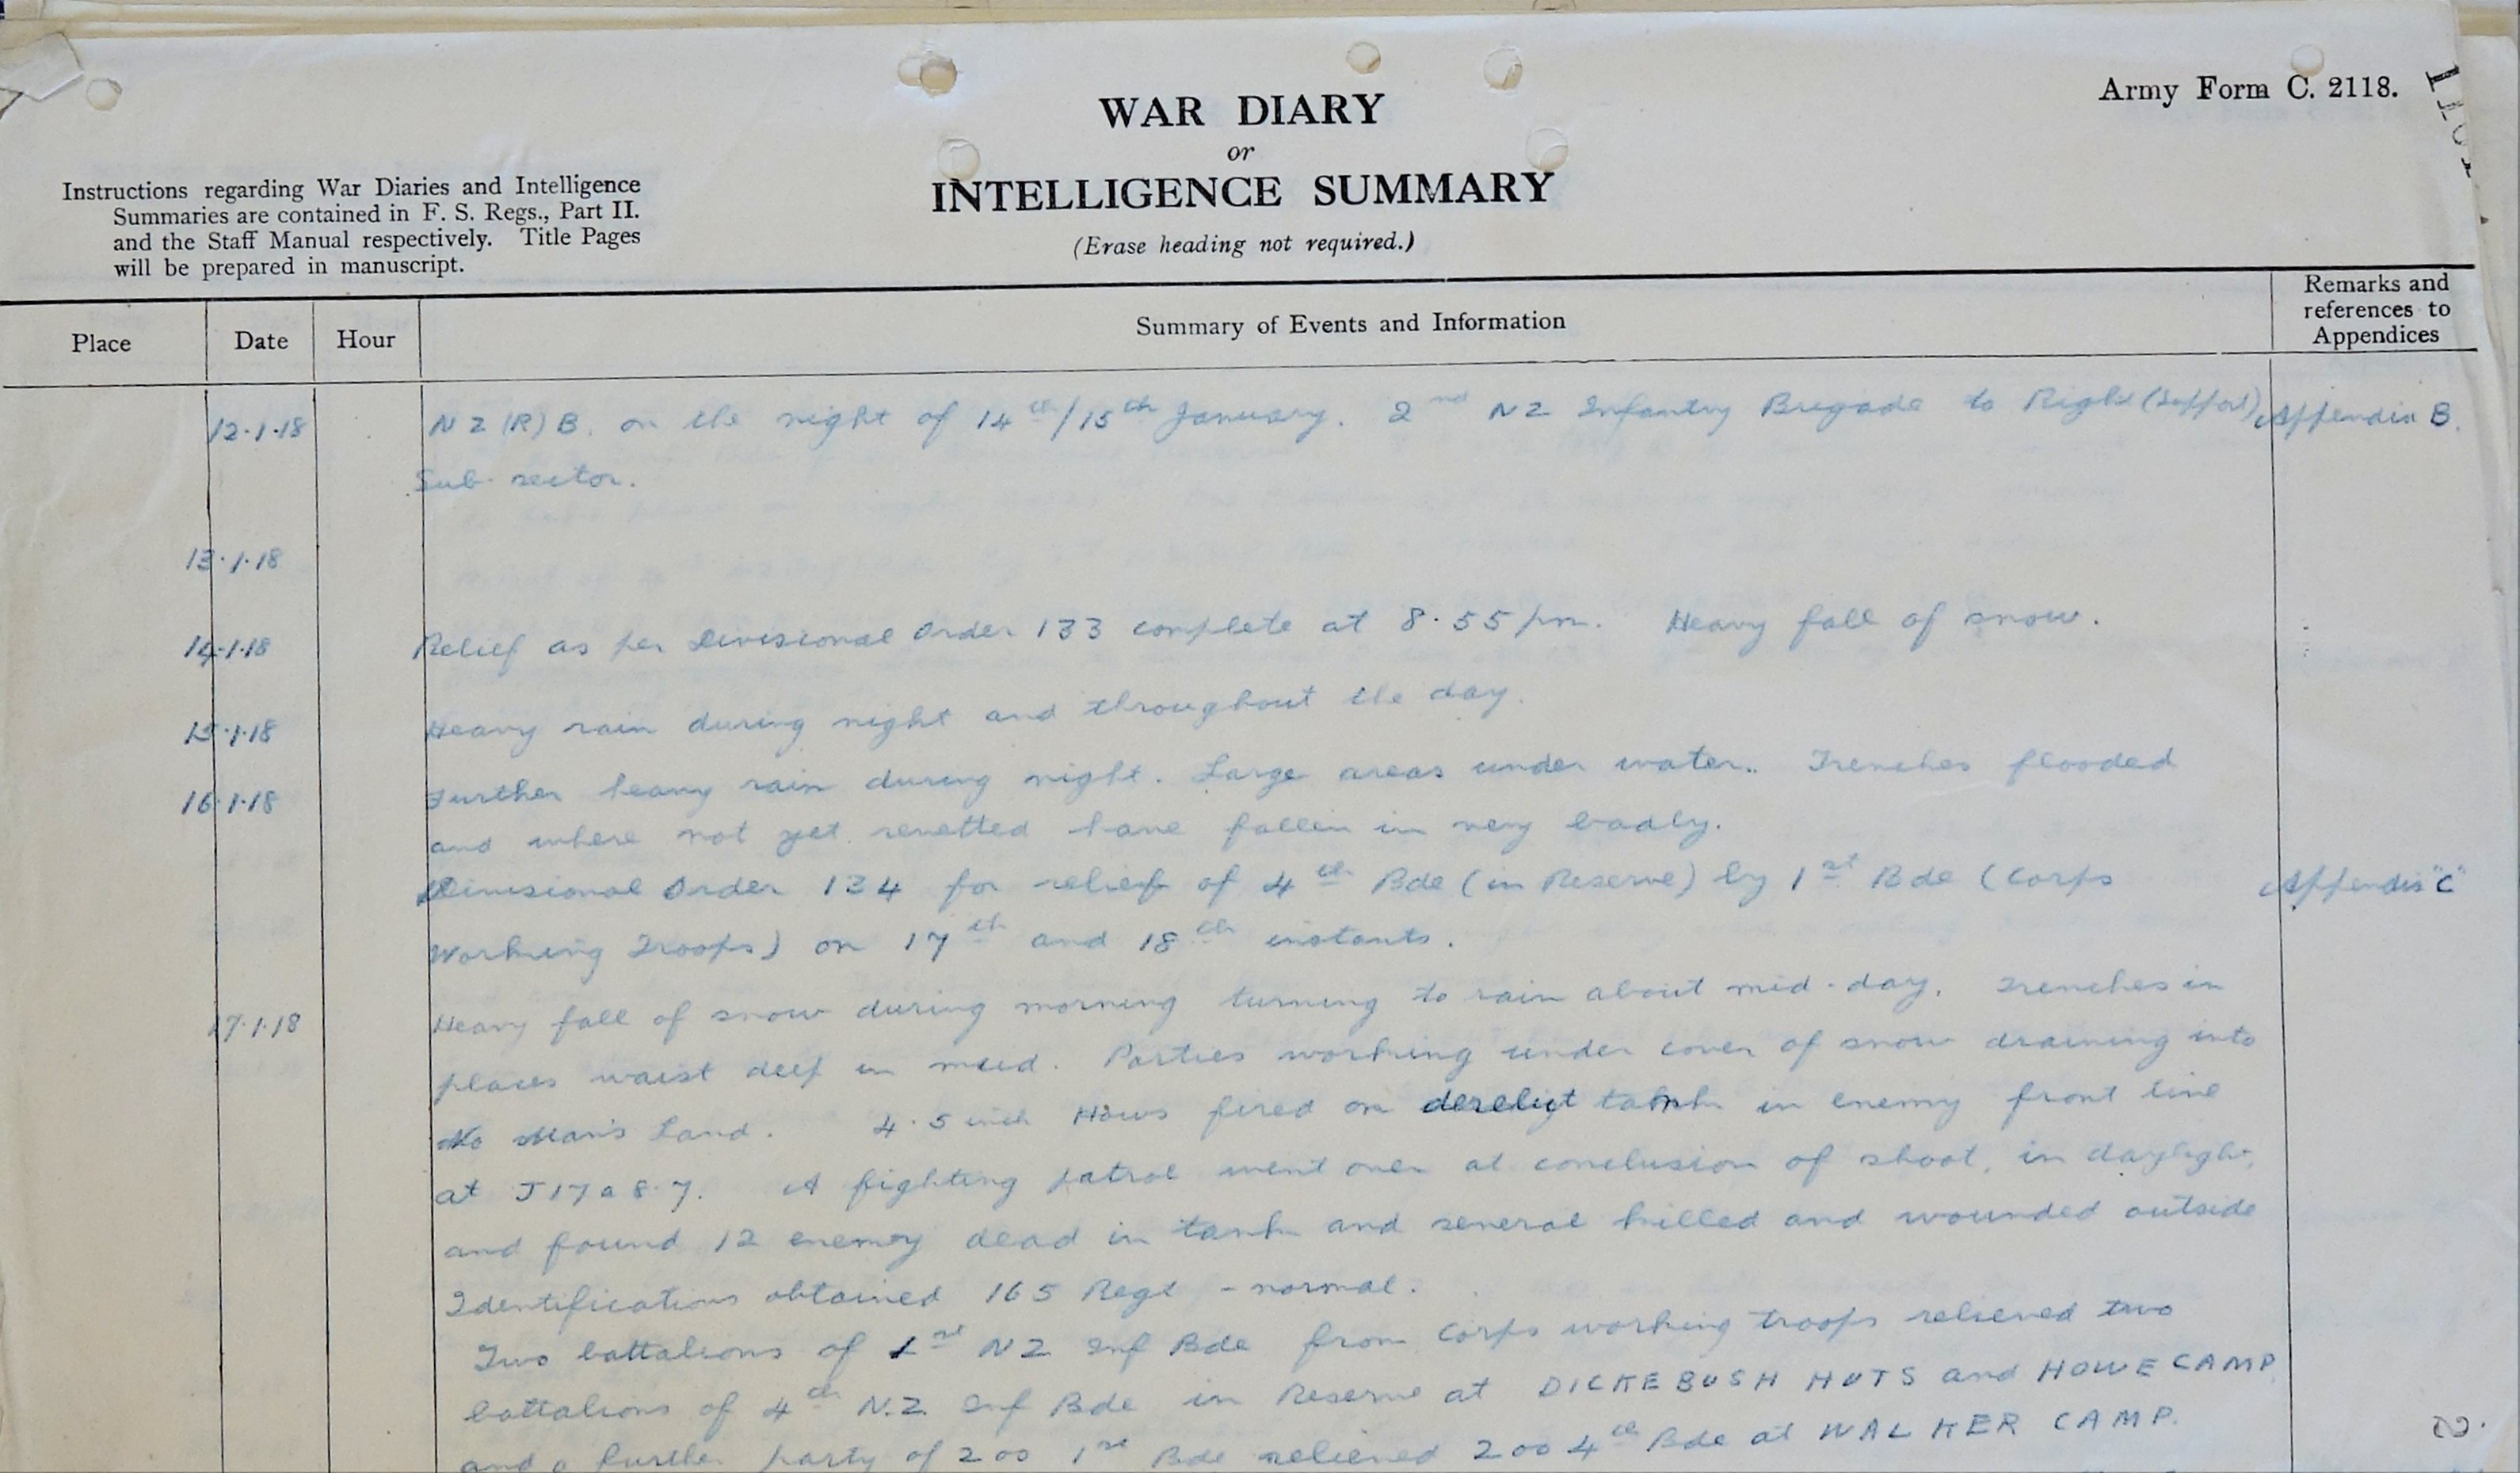 Army Form C. 2118.
WAR DIARY
or
INTELLIGENCE SUMMARY
(Erase heading not required.)
Instructions regarding War Diaries and Intelligence
Summaries are contained in F. S. Regs., Part II.
and the Staff Manual respectively. Title Pages
will be prepared in manuscript.
Place Date Hour Summary of Events and Information Remarks and references to Appendices
12.1.18 N Z (R) B. on the night of 14th/15th January. 2nd N Z Infantry Brigade to Right (Support) Appendix B.
Sub-sector.
13.1.18
14.1.18 Relief as per Divisional Order 133 complete at 8.55 pm. Heavy fall of snow.
15.1.18 Heavy rain during night and throughout the day.
16.1.18 Further heavy rain during night. Large areas under water. Trenches flooded
and where not yet revetted have fallen in very badly.
Divisional Order 134 for relief of 4th Bde (in Reserve) by 1st Bde (Corps Appendix "C"
Working Troops) on 17th and 18th instants.
17.1.18 Heavy fall of snow during morning turning to rain about mid-day. Trenches in
places waist deep in mud. Parties working under cover of snow draining into
No Man's Land. 4.5 inch Hows fired on derelict tank in enemy front line
at J17a 8.7. A fighting patrol went over at conclusion of shoot, in daylight,
and found 12 enemy dead in tank and several killed and wounded outside
Identifications obtained 165 Regt - normal.
Two battalions of 1st N Z Inf Bde from Corps working troops relieved two
battalions of 4th N.Z. Inf Bde in Reserve at DICKEBUSH HUTS and HOWE CAMP
and a further party of 200 1st Bde relieved 200 4th Bde at WALKER CAMP.
2.